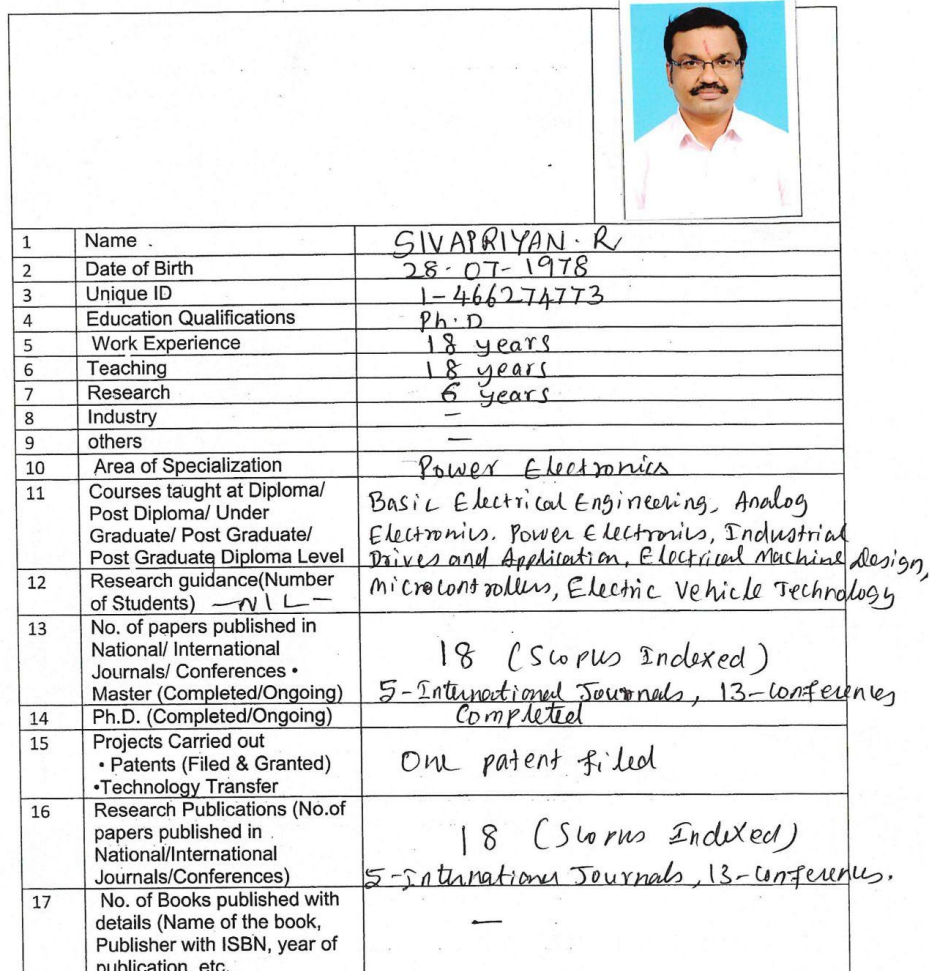 1 Name . SIVAPRIYAN. R
2 Date of Birth 28-07-1978
3 Unique ID 1-466274773
4 Education Qualifications Ph.D
5 Work Experience 18 years
6 Teaching 18 years
7 Research 6 years
8 Industry –
9 others –
10 Area of Specialization Power Electronics
11 Courses taught at Diploma/
Post Diploma/ Under
Graduate/ Post Graduate/
Post Graduate Diploma Level
Basic Electrical Engineering, Analog
Electronics. Power Electronics, Industrial
Drives and Application, Electrical Machine Design,
Microcontrollers, Electric Vehicle Technology
12 Research guidance(Number
of Students) —NIL—
13 No. of papers published in
National/ International
Journals/ Conferences •
Master (Completed/Ongoing)
18 (Scopus Indexed)
5-International Journals, 13-conferences
14 Ph.D. (Completed/Ongoing) Completed
15 Projects Carried out
• Patents (Filed & Granted)
•Technology Transfer
One patent filed
16 Research Publications (No.of
papers published in
National/International
Journals/Conferences)
18 (Scopus Indexed)
5-International Journals, 13-conferences.
17 No. of Books published with
details (Name of the book,
Publisher with ISBN, year of
publication, etc.
–